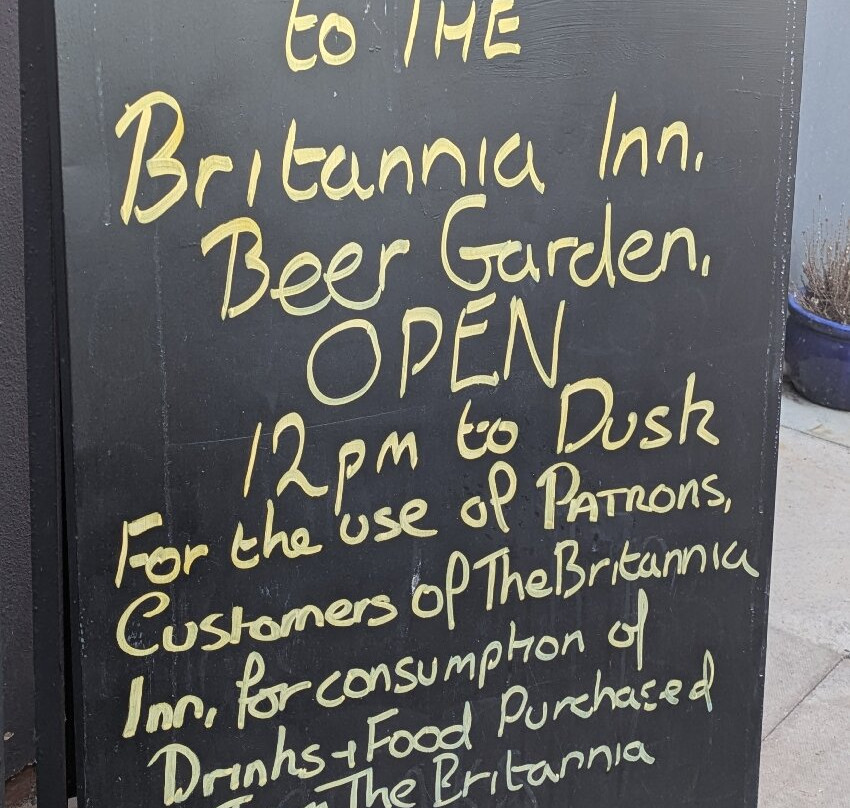 to THE
Britannia Inn.
Beer Garden.
OPEN
12pm to Dusk
For the use of PATRONS,
Customers of The Britannia
Inn, for consumption of
Drinks + Food Purchased
The Britannia